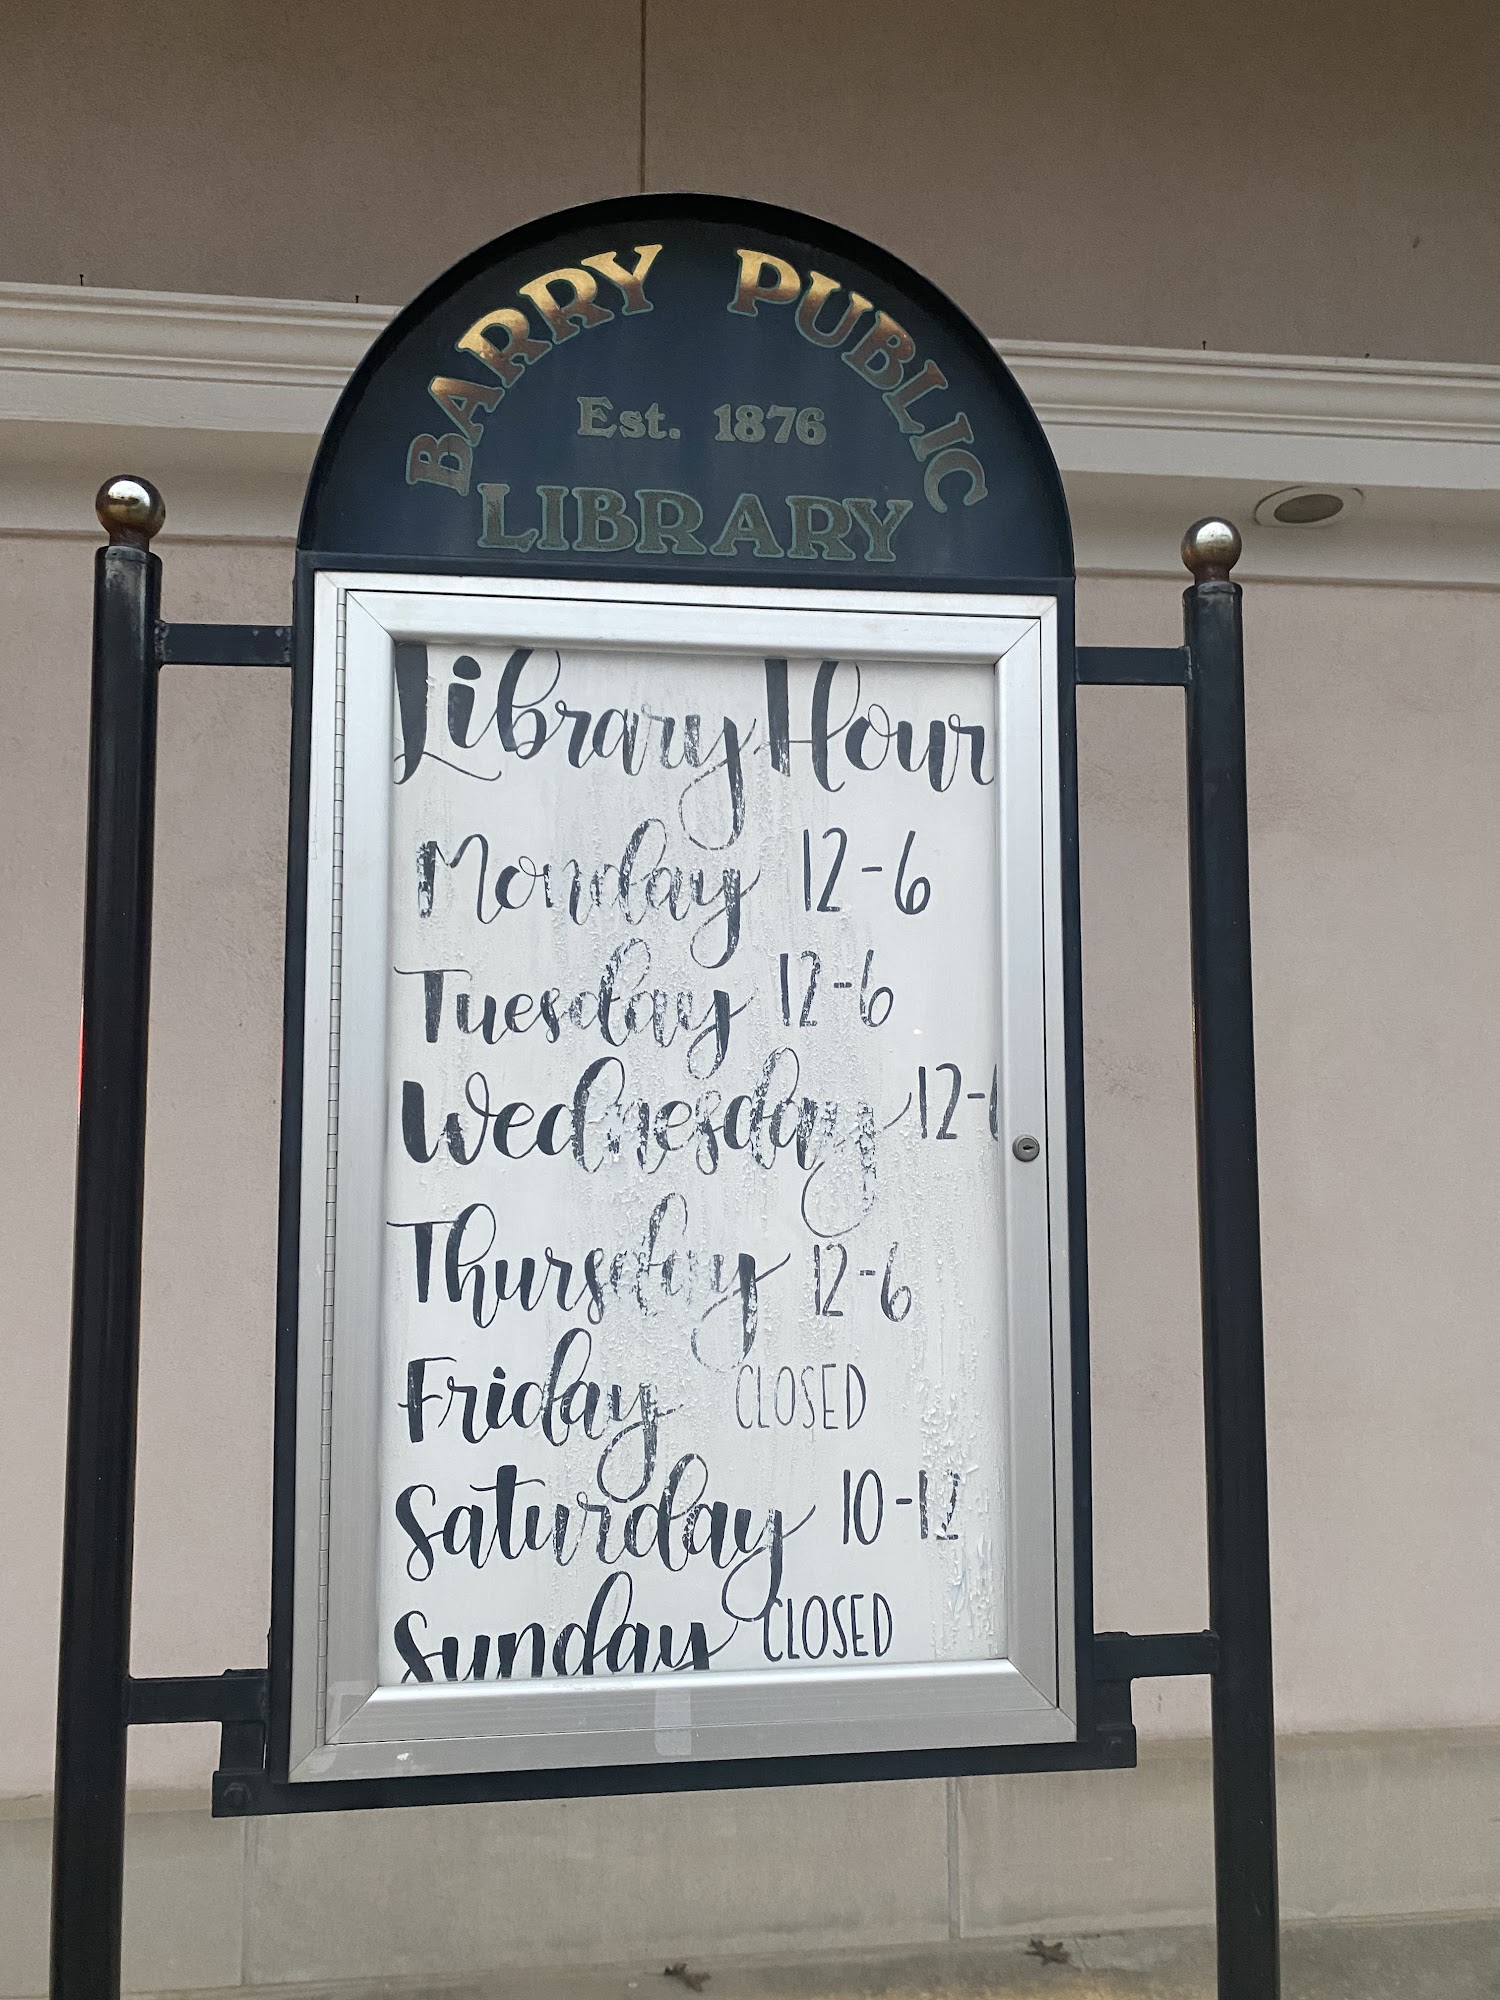 BARRY PUBLIC
Est. 1876
LIBRARY
Library Hour
Monday 12-6
Tuesday 12-6
Wednesday 12-
Thursday 12-6
Friday CLOSED
Saturday 10-12
Sunday CLOSED